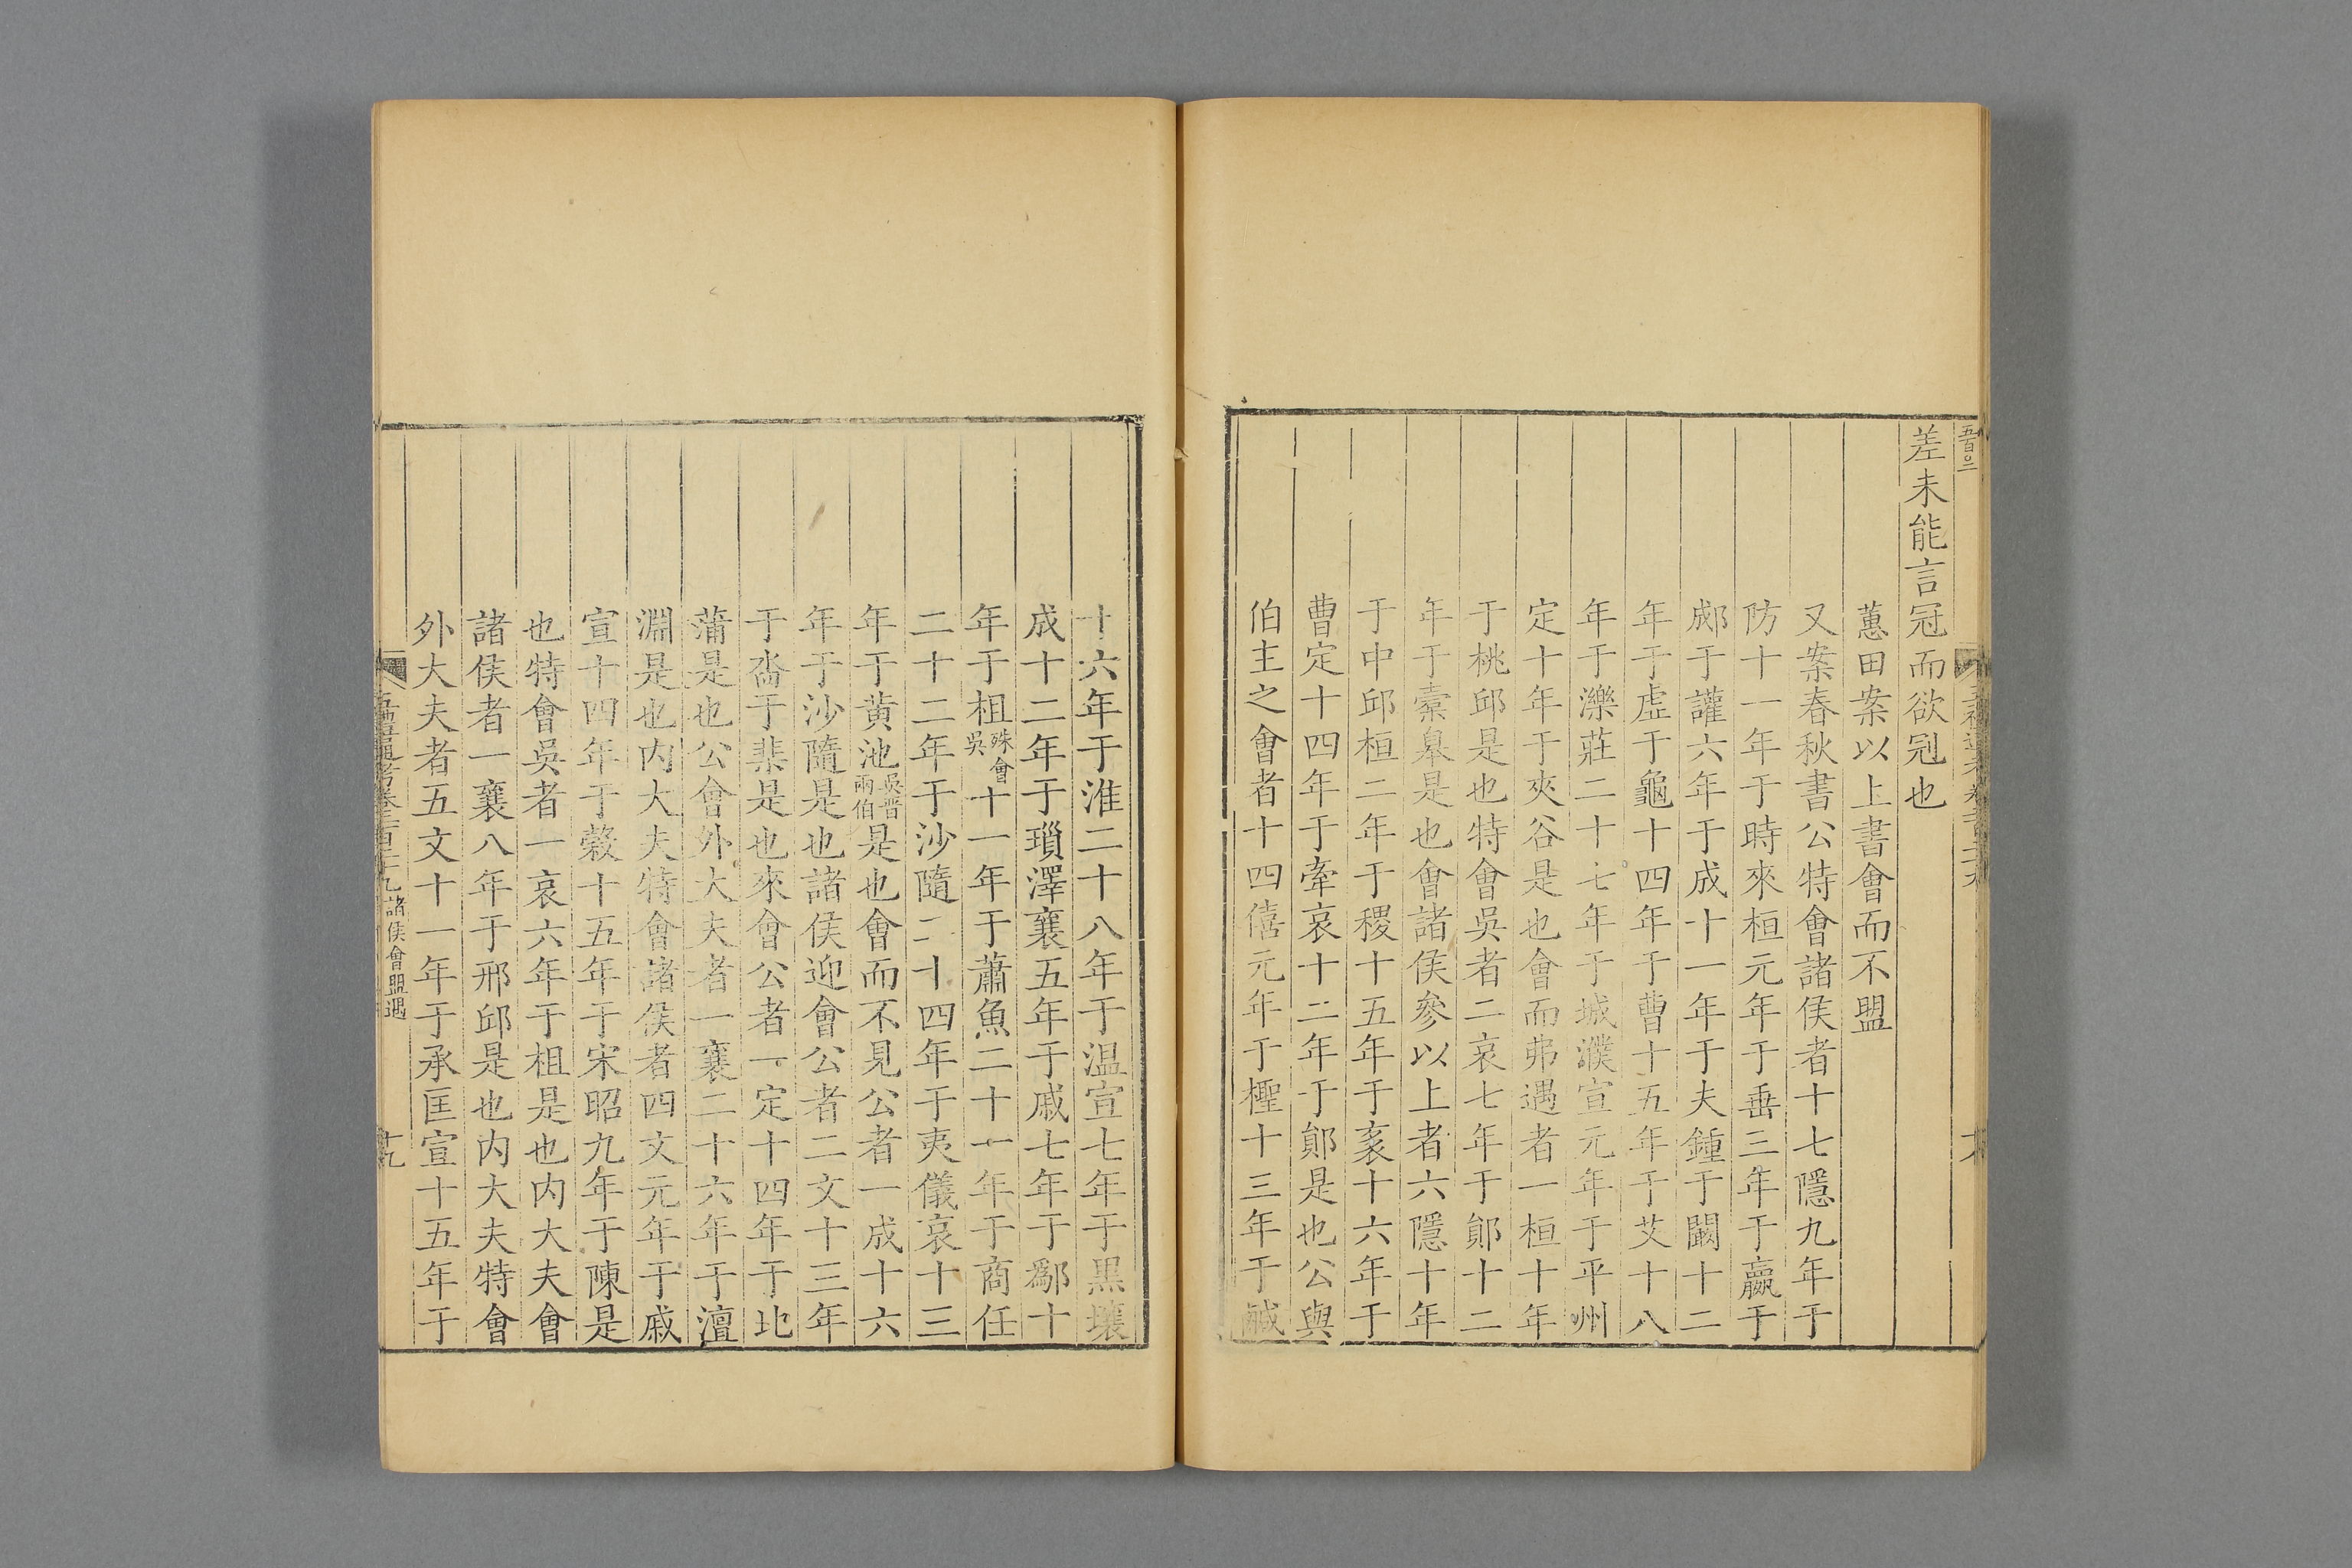 差未能言冠而欲冠也
蕙田案以上書會而不盟
又案春秋書公特會諸侯者十七隱九年于
防十一年于時來桓元年于垂三年于嬴于
郕于讙六年于成十一年于夫鍾于闞十二
年于虛于龜十四年于曹十五年于艾十八
年于濼莊二十七年于城濮宣元年于平州
定十年于夾谷是也會而弗遇者一桓十年
于桃邱是也特會吳者二哀七年于鄫十二
年于橐皋是也會諸侯參以上者六隱十年
于中邱桓二年于稷十五年于袲十六年于
曹定十四年于牽哀十二年于鄖是也公與
伯主之會者十四僖元年于檉十三年于鹹
十六年于淮二十八年于温宣七年于黒壤
成十二年于瑣澤襄五年于戚七年于鄬十
年于柤殊會吳十一年于蕭魚二十一年于商任
二十二年于沙隨二十四年于夷儀哀十三
年于黄池吳晋兩伯是也會而不見公者一成十六
年于沙隨是也諸侯迎會公者二文十三年
于沓于棐是也來會公者一定十四年于比
蒲是也公會外大夫者一襄二十六年于澶
淵是也内大夫特會諸侯者四文元年于戚
宣十四年于穀十五年于宋昭九年于陳是
也特會吳者一哀六年于柤是也内大夫會
諸侯者一襄八年于邢邱是也内大夫特會
外大夫者五文十一年于承匡宣十五年于
五禮通考卷二百二十九 諸侯會盟遇 十九